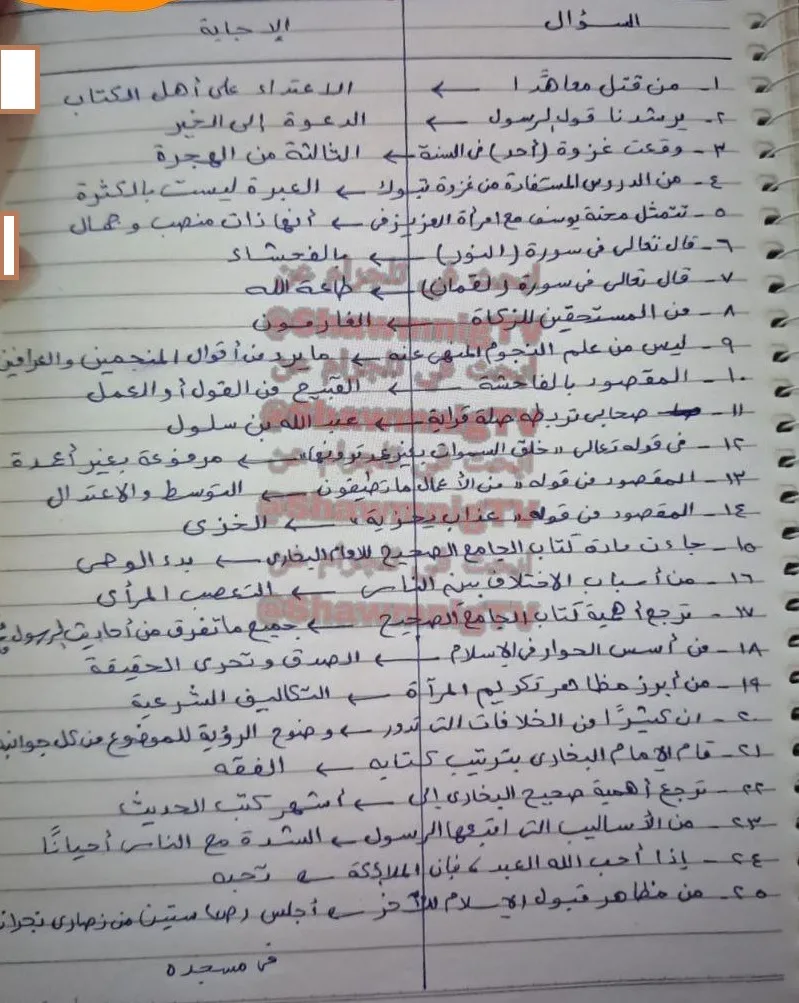 السؤال الإجابة
١- من قتل معاهدًا ← الاعتداء على أهل الكتاب
٢- يرشدنا قول الرسول ← الدعوة إلى الخير
٣- وقعت غزوة (أحد) فى السنة ← الثالثة من الهجرة
٤- من الدروس المستفادة من غزوة تبوك ← العبرة ليست بالكثرة
٥- تتمثل محنة يوسف مع امرأة العزيز فى ← أنها ذات منصب وجمال
٦- قال تعالى فى سورة (النور) ← بالفحشاء
٧- قال تعالى فى سورة (لقمان) ← طاعة الله
٨- من المستحقين للزكاة ← الغارمون
٩- ليس من علم النجوم المنهى عنه ← ما يرد من أقوال المنجمين والعرافين
١٠- المقصود بالفاحشة ← القبيح من القول أو العمل
١١- صحابى تربطه صلة قرابة ← عبد الله بن سلول
١٢- فى قوله تعالى «خلق السموات بغير عمد ترونها» ← مرفوعة بغير أعمدة
١٣- المقصود من قوله «من الأعمال ما تطيقون ← التوسط والاعتدال
١٤- المقصود من قوله «عذاب يخزيه» ← الخزى
١٥- جاءت مادة كتاب الجامع الصحيح للإمام البخارى ← بدء الوحى
١٦- من أسباب الاختلاف بين الناس ← التعصب للرأى
١٧- ترجع أهمية كتاب الجامع الصحيح ← جميع ما تفرق من أحاديث الرسول
١٨- من أسس الحوار فى الإسلام ← الصدق وتحرى الحقيقة
١٩- من أبرز مظاهر تكريم المرأة ← التكاليف الشرعية
٢٠- ان كثيرًا من الخلافات التى تدور ← وضوح الرؤية للموضوع من كل جوانبه
٢١- قام الإمام البخارى بترتيب كتابه ← الفقه
٢٢- ترجع أهمية صحيح البخارى إلى ← أشهر كتب الحديث
٢٣- من الأساليب التى اتبعها الرسول ← الشدة مع الناس أحيانًا
٢٤- إذا أحب الله العبد، فإن الملائكة ← تحبه
٢٥- من مظاهر قبول الإسلام للآخر ← أجلس ستين من نصارى نجران
فى مسجده
ابحث في تلجرام عن
@ShawmmigTV
ابحث في تلجرام عن
@ShawmmigTV
ابحث في تلجرام عن
@ShawmmigTV
ابحث في تلجرام عن
@ShawmmigTV